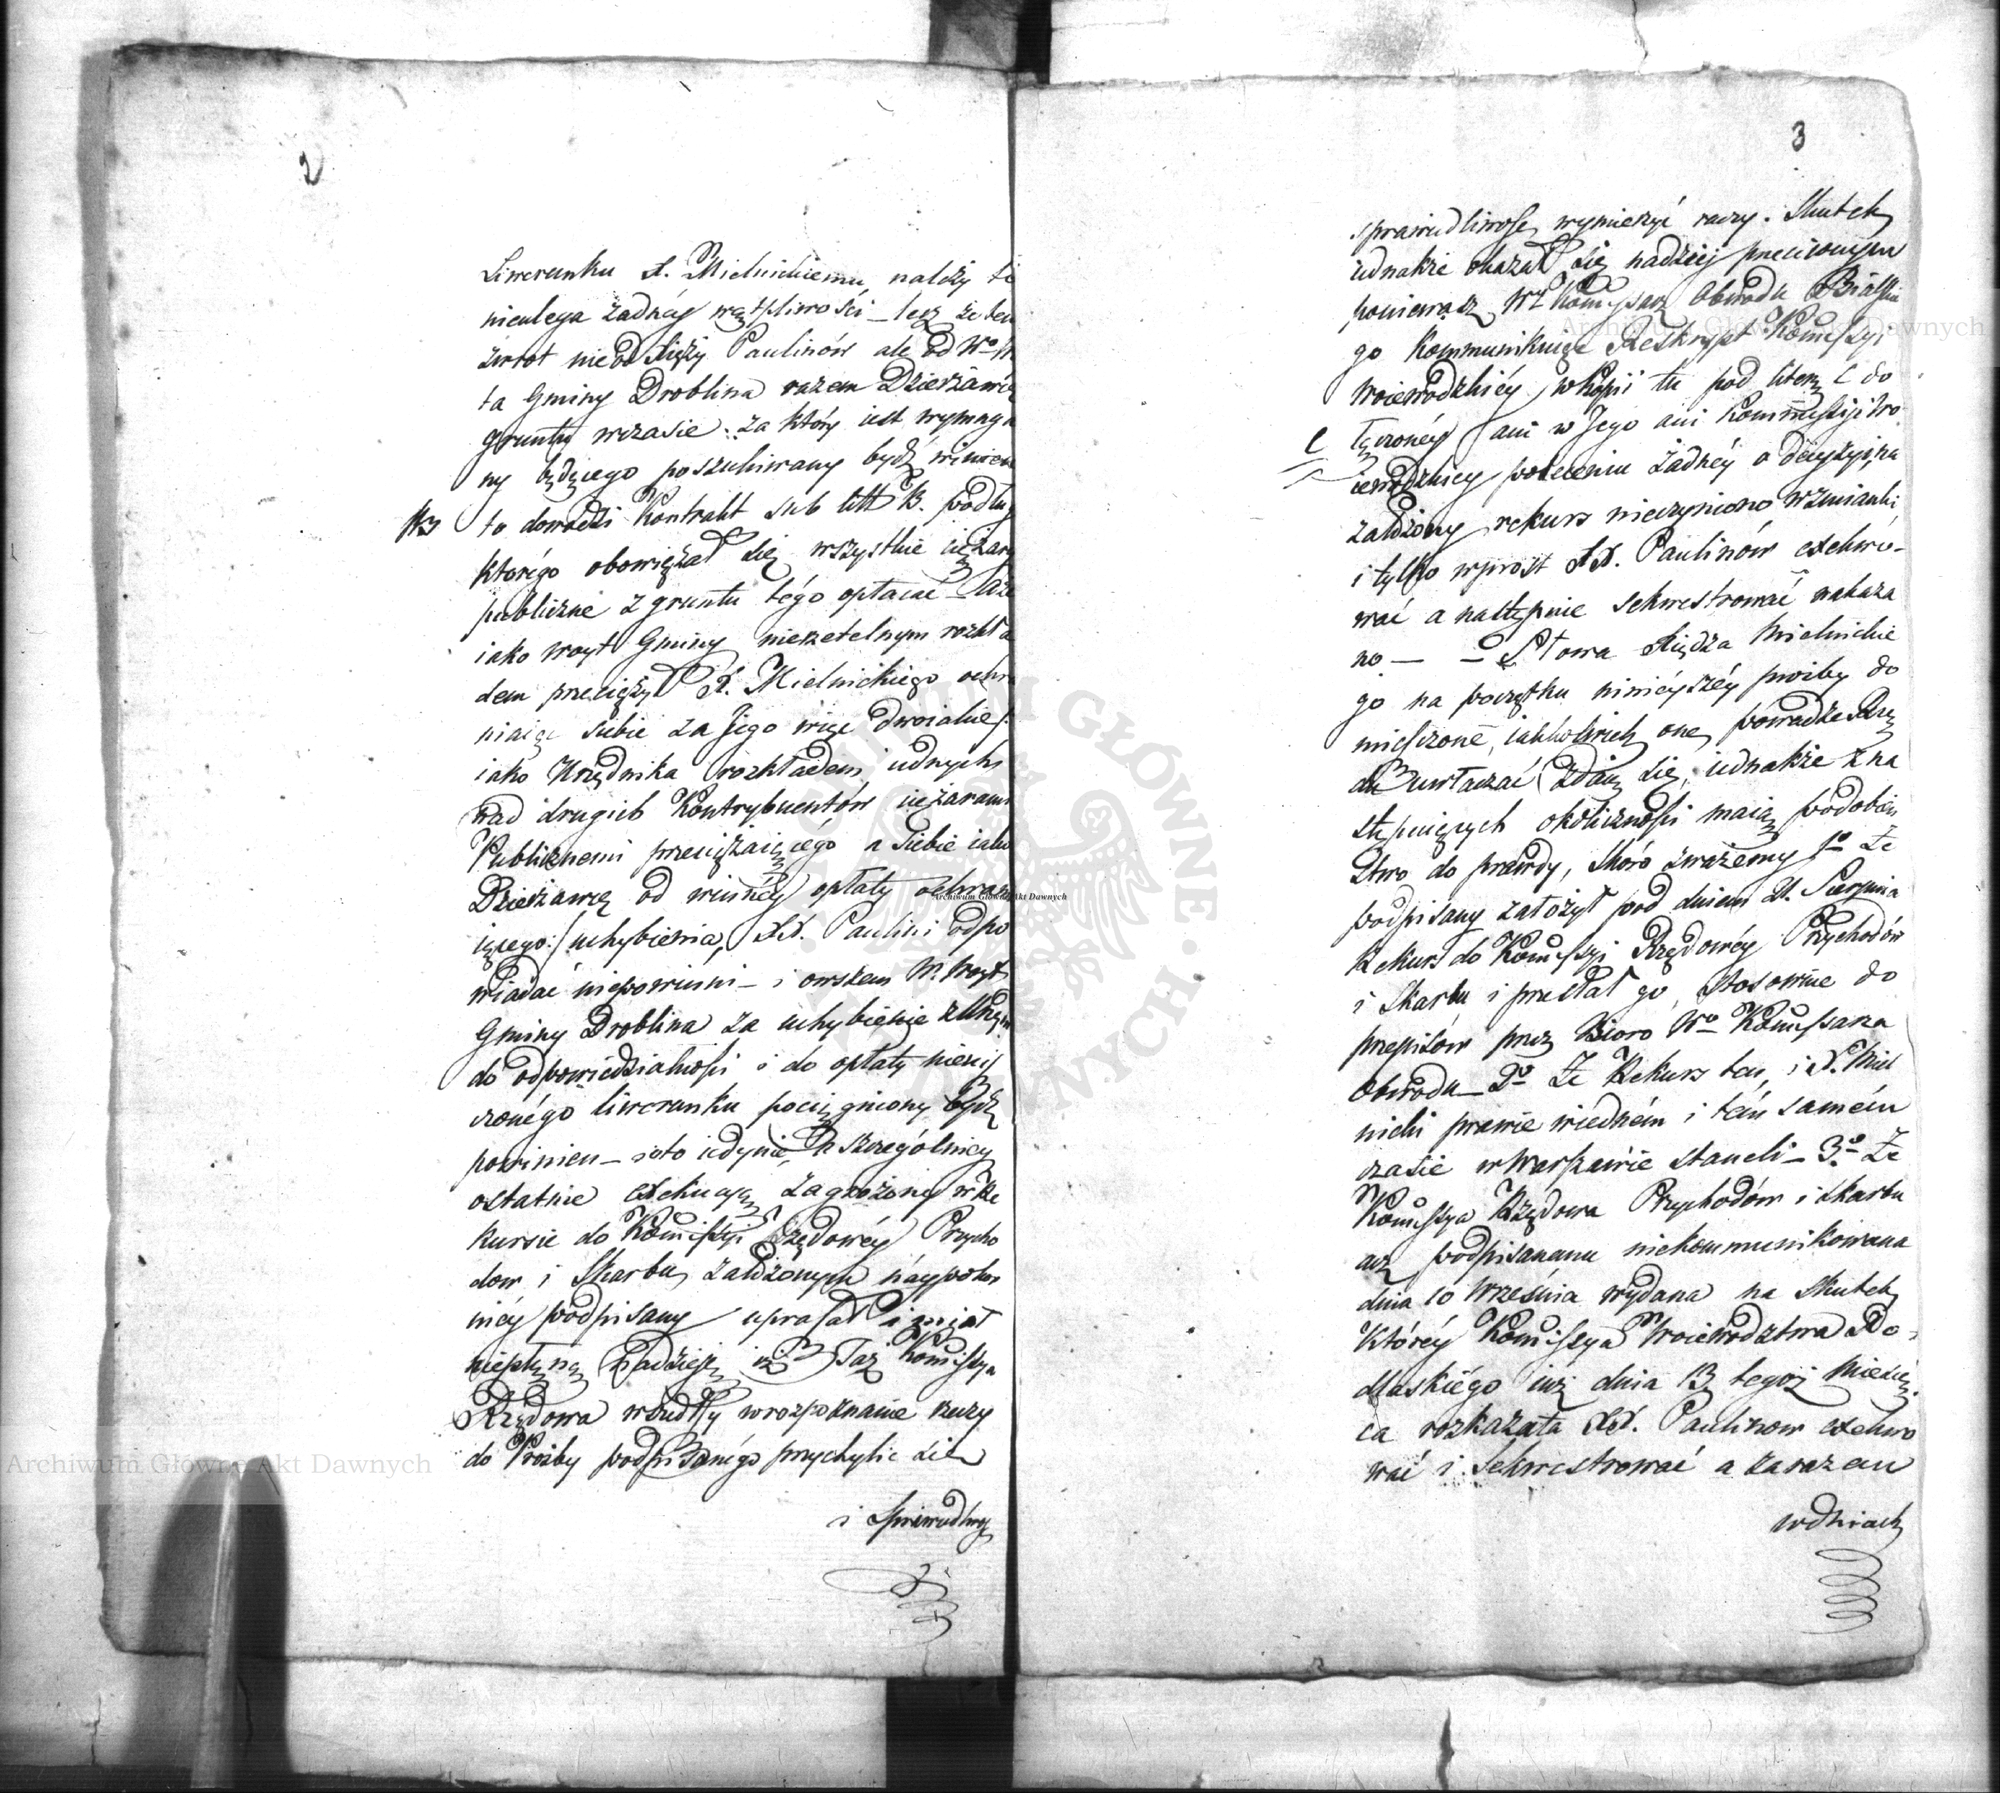 2
Liwerunku X. Mielnickiemu, należy to
nieulega żadnéy wątpliwości – lecz że ten
zwrot nie od Xięży Paulinów ale od Wo W
ta Gminy Droblina razem Dzierżawcę
gruntu wczasie za który iest wymaga
ny będącego poszukiwany bydź winien
B to dowodzi Kontrakt sub litt B. podług
którégo obowiązał się wszystkie ciężary
publiczne z gruntu tégo opłacać –
iako woyt Gminy nierzetelnym rozkła
dem przeciążył X. Mielnickiego ochra
niaiąc siebie za Jego więc dwoiakie /:
iako Urzędnika rozkładem iednych
nad drugich Kontrybuentów ciężarami
Publicznemi przeciążaiącégo a siebie iako
Dzierżawcę od winnéy opłaty ochrania
iącego :/ uchybienia, XX. Paulini odpo
wiadać niepowinni – i owszem W. Woyt
Gminy Droblina za uchybienie
do odpowiedzialności i do opłaty nieuiś
czonégo liwerunku pociągniony bydź
powinien – ioto iedynie, a szczególniey
ostatnie exekucyą zagrożony w Re
kursie do Kommissyi Rządowéy Przycho
dow i Skarbu założonym náypokor
niéy podpisany upraszał i miał
niepłonną nadzieję iż Taż Kommissya
Rządowa wszedłszy w rozpoznanie rzeczy
do Prozby podpisanégo przychylić się
i sprawiedliwą
3
sprawiedliwość wymierzyć raczy. Skutek
iednakże okazał się nadziei przeciwnym
ponieważ Wy Kommissarz Obwodu Bialskie
go kommunikuiąc Reskrypt Kommissyi
Woiewódzkiéy w kopii tu pod literą C do
C łączonéy ani w Jego ani Kommissyi Wo
iewódzkiey poleceniu żadnéy o decyzyi, na
założony rekurs nieczyniono wzmianki
i tylko wprost XX. Paulinów exekwo-
wać a następnie sekwestrować nakaza
no – – Słowa Xiędza Mielnickie
go na początku niniéyszéy prozby do
mieszczone, iakkolwiek one powadze Rzą
du uwłaczać zdaią się, iednakże z na
stępuiących okoliczności maią podobień
stwo do prawdy, skoro zważemy 1o Że
podpisany założył pod dniem 21. Sierpnia
Rekurs do Kommissyi Rządowéy Przychodów
i Skarbu i przesłał go, stosownie do
przepisow przez Bioro Wo Kommissarza
Obwodu – 2o Że Rekurs ten, i X. Miel
nicki prawie wiedném i tém samém
czasie w Warszawie stanęli – 3o Że
Kommissya Rządowa Przychodów i Skarbu
podpisanemu niekommunikowana
dnia 10 Września wydana na skutek
któréy Kommissya Woiewodztwa Po-
dlaskiégo iuż dnia 13 tegoż Miesią
ca rozkazała XX. Paulinow exekwo
wać i Sekwestrować a zarazem
w dniach